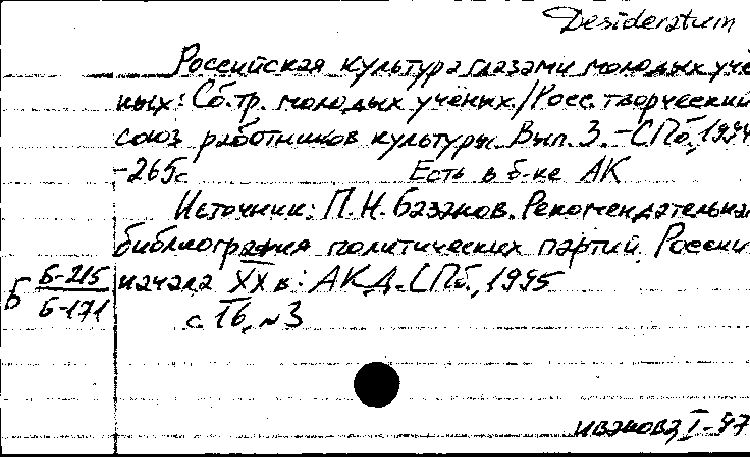 Desideratum
Российская культура глазами молодых учё
ных: Сб. тр. молодых учёных / Росс. творческий
союз работников культуры. Вып. 3. - СПб., 1994
- 265с Есть в б-ке АК
Источник: П.Н. Базанов. Рекомендательная
библиография политических партий России
Б Б-215
Б-171
начала XX в: АКД. - СПб., 1995
с 16, №3
иванова I-97